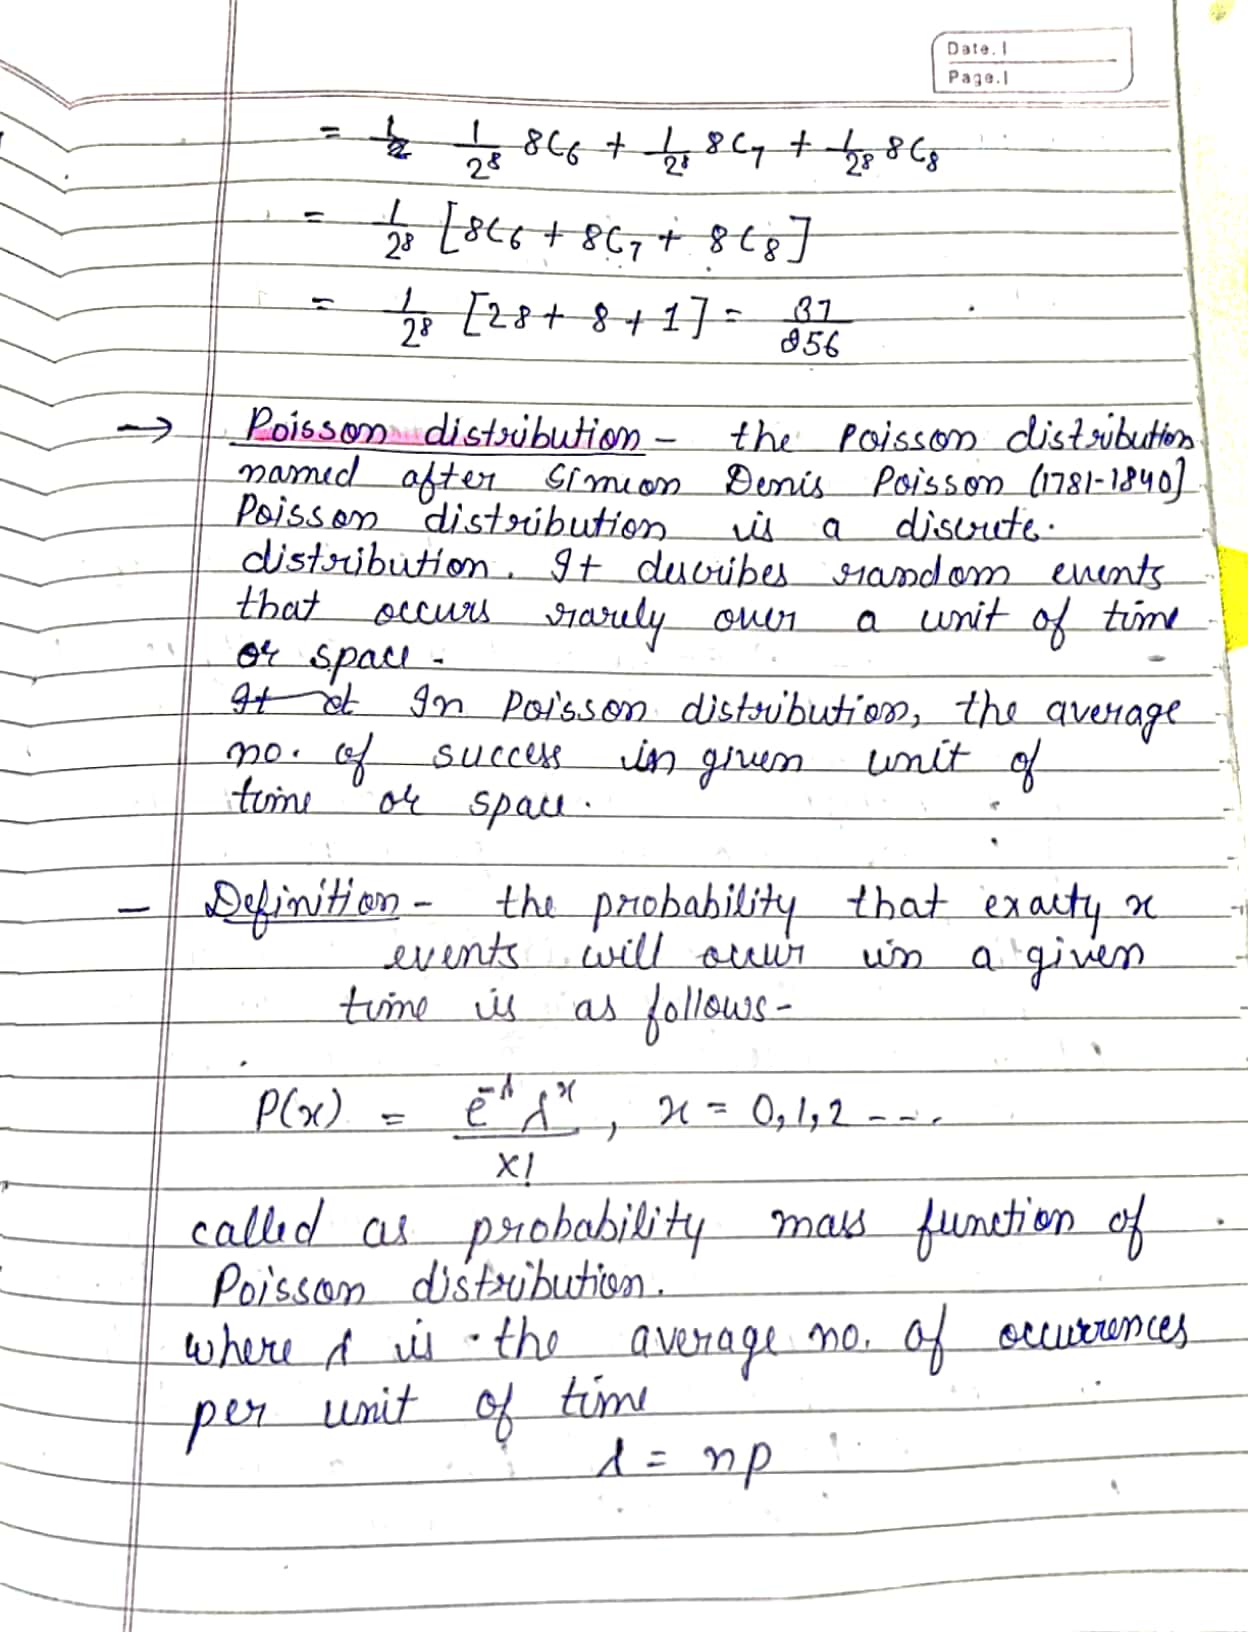 Date.
Page.
= 1/2 1/2⁸ 8C₆ + 1/2⁸ 8C₇ + 1/2⁸ 8C₈
= 1/2⁸ [8C₆ + 8C₇ + 8C₈]
= 1/2⁸ [28 + 8 + 1] = 37/256
→ Poisson distribution - the Poisson distribution
named after Simeon Denis Poisson (1781-1840]
Poisson distribution is a discrete.
distribution. It describes random events
that occurs rarely over a unit of time
or space.
It et In Poisson distribution, the average
no. of success in given unit of
time or space.
- Definition - the probability that exacty x
events will occur in a given
time is as follows -
P(x) = e^-λ λ^x / x!, x = 0, 1, 2 ----
called as probability mass function of
Poisson distribution.
where λ is the average no. of occurrences
per unit of time
λ = np